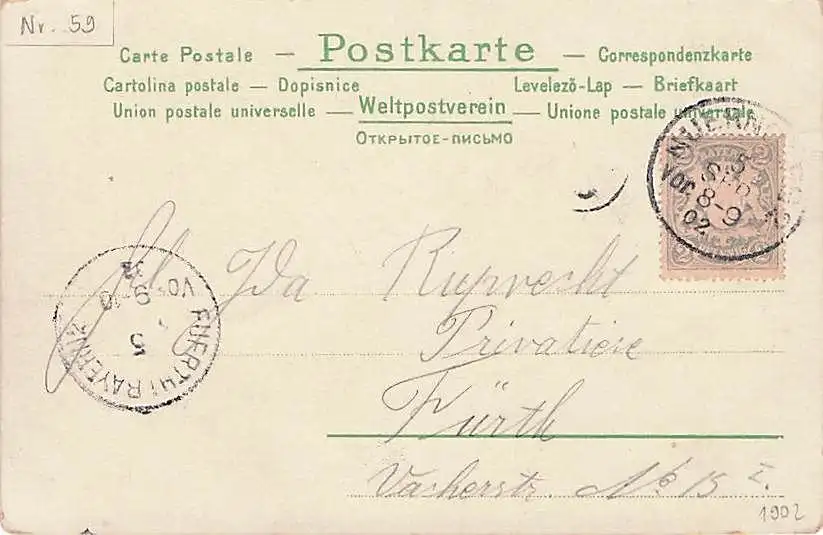 Nr. 59
Carte Postale — Postkarte — Correspondenzkarte
Cartolina postale — Dopisnice Levelező-Lap — Briefkaart
Union postale universelle — Weltpostverein — Unione postale universale
ОТКРЫТОЕ-ПИСЬМО
NUERN
5
SEP
VOR 8-9
02
2 2
2 2
Frl. Ida Ruprecht
Privatiere
Fürth
Vacherstr. No 15 I.
FUERTH (BAYERN)
5
9-10
VOR
1902